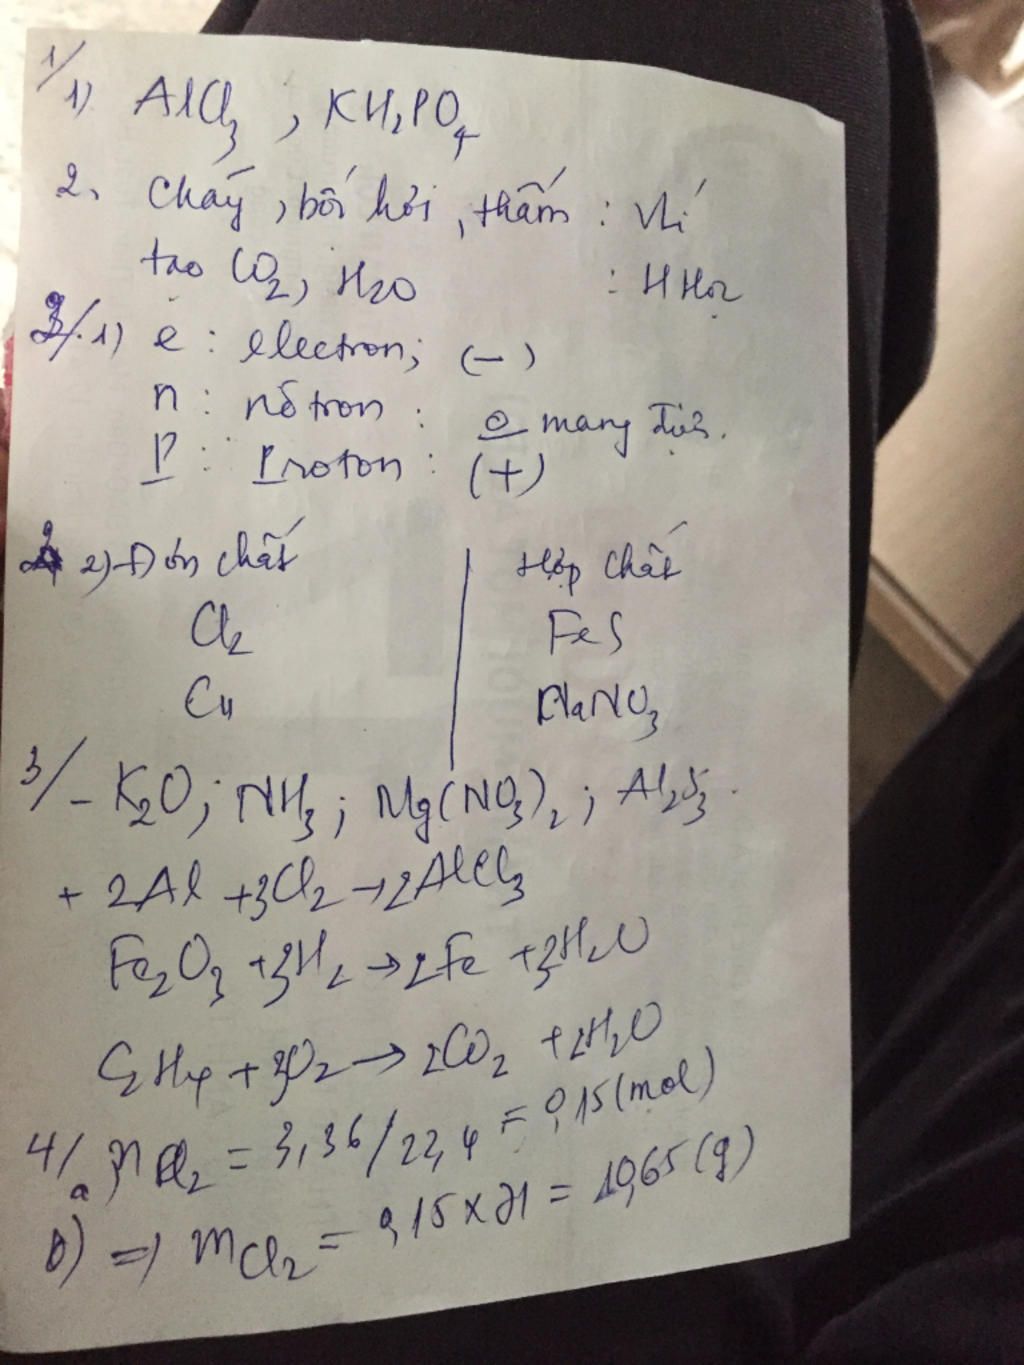 1/
1) AlCl3 , KH2PO4
2. Cháy , bốc hơi , thấm : Vlí
tạo CO2, H2O : HHọc
2/. 1) e : electron; (-)
n : nơtron : o mang điện.
P : Proton : (+)
2) Đơn chất | Hợp chất
Cl2 | FeS
Cu | NaNO3
3/ - K2O; NH3; Mg(NO3)2; Al2S3.
+ 2Al +3Cl2 → 2AlCl3
Fe2O3 +3H2 → 2Fe +3H2O
C2H4 + 3O2 → 2CO2 +2H2O
4/ a) nCl2 = 3,36/22,4 = 0,15(mol)
b) => mCl2 = 0,15 x 71 = 10,65 (g)